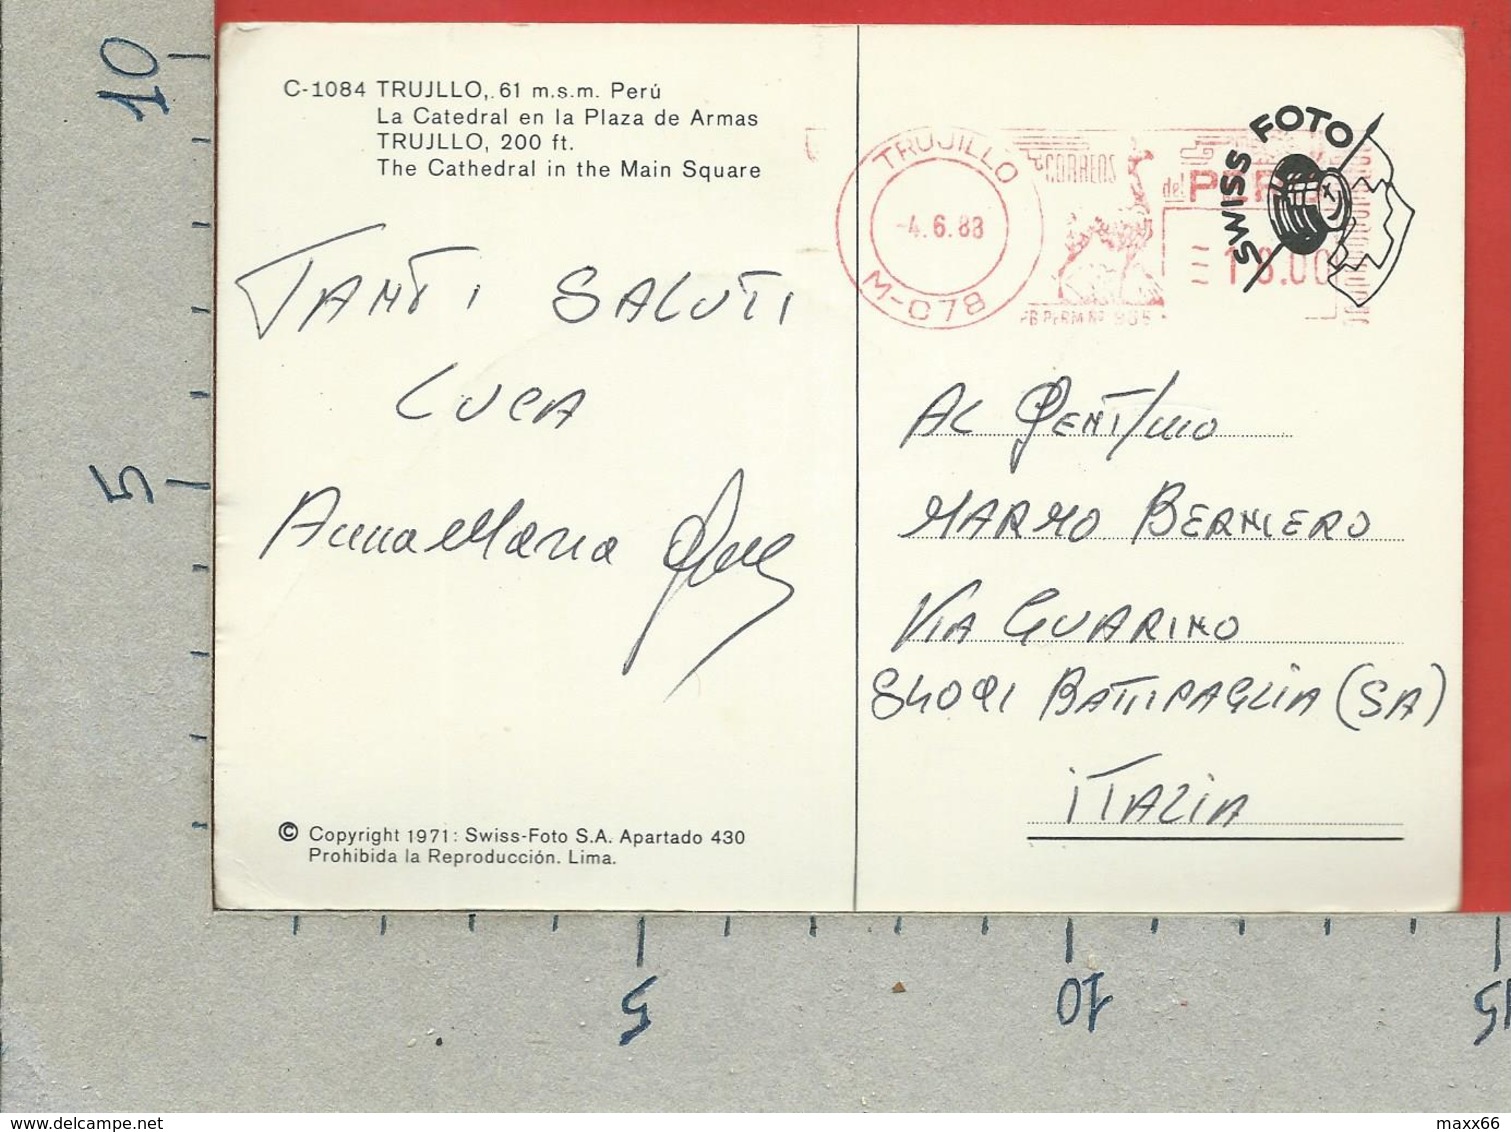 C-1084 TRUJLLO,.61 m.s.m. Perú
La Catedral en la Plaza de Armas
TRUJLLO, 200 ft.
The Cathedral in the Main Square
TANTI SALUTI
LUCA
Anna Maria
© Copyright 1971: Swiss-Foto S.A. Apartado 430
Prohibida la Reproducción. Lima.
TRUJILLO
-4.6.88
M-078
CORREOS
del PERU
SWISS FOTO
AL GENT/mo
MARMO BERNIERO
VIA GUARINO
84091 BATTIPAGLIA (SA)
ITALIA
10
5
5
10
15
maxx66
www.delcampe.net